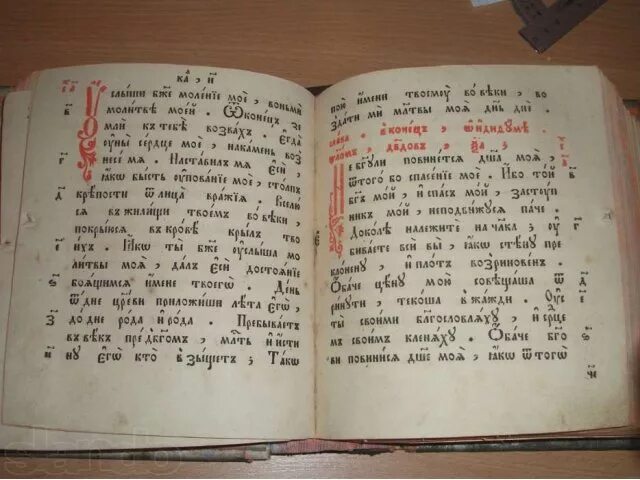 ка҃ , и҃
Услыши бж҃е моленїе моє , воньми
молитвѣ моей . Ѿ конецъ зе
мли къ тебѣ возвахъ . Єгда
оуны сердце мое , на камень воз
несе мѧ . Наставилъ мѧ єси ,
ꙗкѡ бысть оупованїе моє , столпъ
крѣпости ѿ лица вражїѧ . Вселю
сѧ в жилищи твоемъ во вѣки ,
покрыюсѧ в кровѣ крылъ тво
ихъ . Ꙗкѡ ты бж҃е оуслыша мо
литвы моѧ , далъ єси достоѧнїе
боѧщимсѧ имене твоегѡ . День
ѿ дне цреви приложиши лѣта єгѡ ,
до дне рода и рода . Пребываетъ
въ вѣкъ пред бг҃омъ , млть и исти
ну єгѡ кто взыщетъ ; Такѡ
пою имени твоемоу во вѣки , во
здати ми млтвы моѧ дн҃ь дне .
слава . в конецъ , ѿ идидуме
ѱаломъ , дв҃довъ , ѯ҃а ;
Не бг҃ꙋли повинетсѧ дш҃а моѧ ,
ѿ того бо спасенїе мое . Ибо той
бг҃ъ мой , и сп҃съ мой , заступ
никъ мой , неподвижусѧ паче .
Доколѣ належите на чл҃ка ; оу
биваете вси вы , ꙗкѡ стѣну пре
клонену , и плотъ возриновен .
Обаче цѣну мою совѣщаша ѿ
ринути , текоша в жажди . Оусе
ты своими благословлѧху , и срце
мъ своимъ кленѧху . Обаче бг҃о
ви повинисѧ дш҃е моѧ , ꙗкѡ ѿ тогѡ
slando